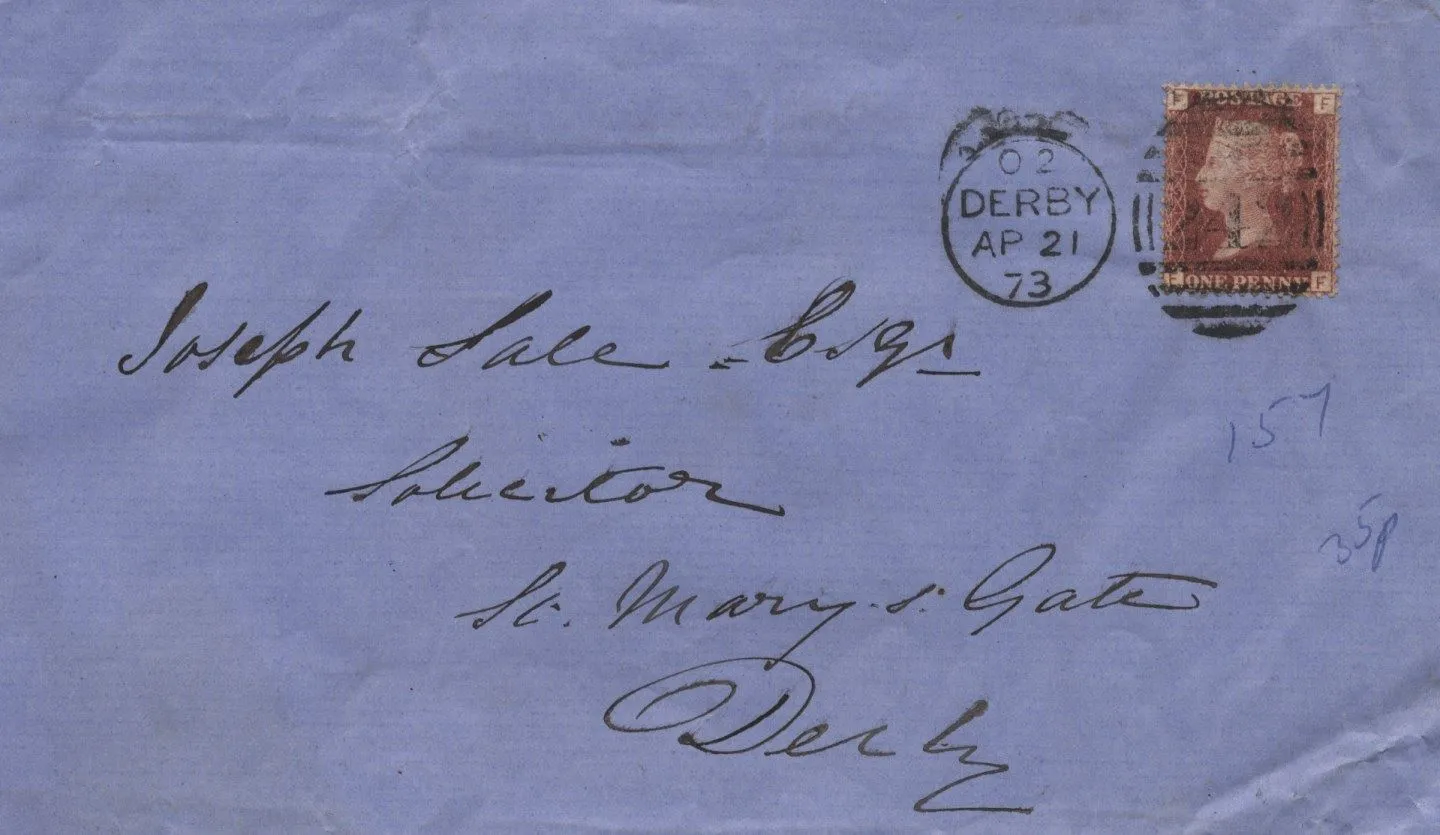 F POSTAGE F
02
DERBY
AP 21
73
F ONE PENNY F
Joseph Sale Esqr
Solicitor
157
35p
St. Mary.s. Gate
Derby